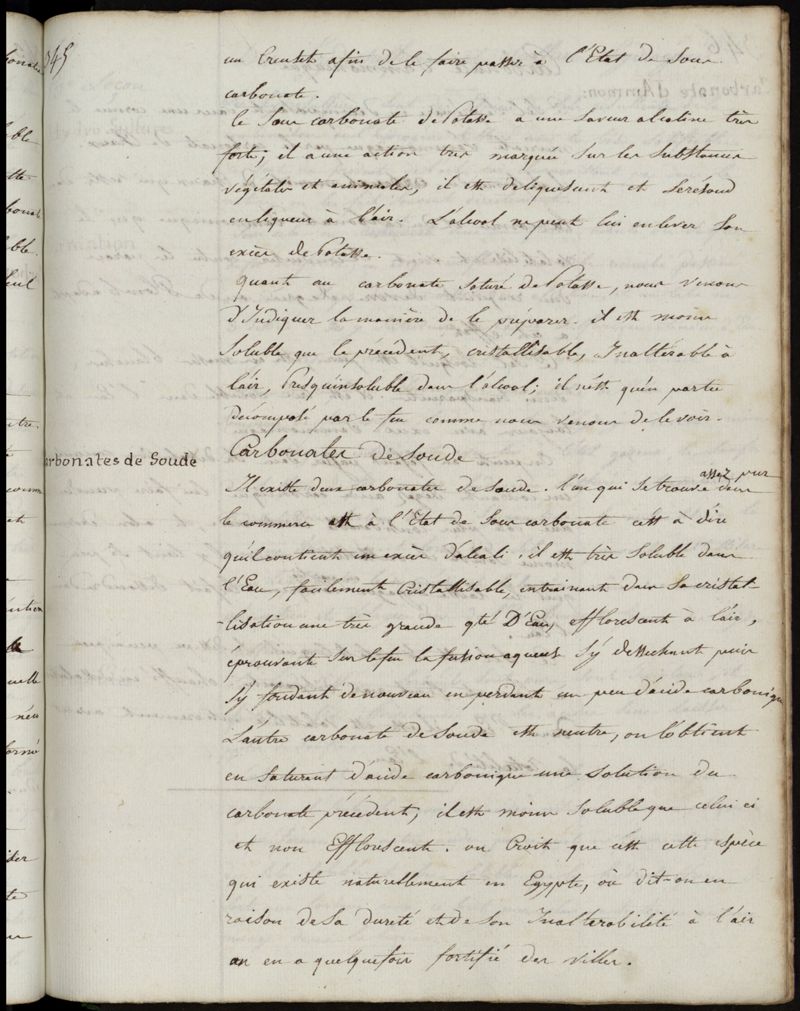 345
un Creuset afin de le faire passer à l'Etat de Sous
carbonate.
le Sous carbonate de Potasse a une saveur alcaline très
forte; il a une action très marquée sur les substances
végétales et animales, il est déliquescent et se résoud
en liqueur à l'air. L'alcool ne peut lui enlever son
excès de Potasse.
quant au carbonate saturé de Potasse, nous venons
D'Indiquer la manière de le préparer. il est moins
Soluble que le précédent, cristallisable, Inaltérable à
l'air, Presqu'insoluble dans l'alcool; il n'est qu'en partie
Décomposé par le feu comme nous venons de le voir.
Carbonates de Soude
arbonates de Soude
Il existe deux carbonates de soude. l'un qui se trouve assez pur dans
le commerce est à l'Etat de sous carbonate c'est à dire
qu'il contient un excès d'alcali. il est très soluble dans
l'Eau, facilement Cristallisable, entrainant dans sa cristal-
-lisation une très grande qté D'Eau, efflorescent à l'air,
éprouvant sur le feu la fusion aqueuse s'y dessechant puis
s'y fondant de nouveau en perdant un peu d'acide carbonique
L'autre carbonate de Soude est neutre, on l'obtient
en saturant d'acide carbonique une solution du
carbonate précédent, il est moins soluble que celui ci
et non Efflorescent. on Croit que c'est cette espèce
qui existe naturellement en Egypte, où dit-on en
raison de sa dureté et de son Inaltérabilité à l'air
on en a quelquefois fortifié des villes.